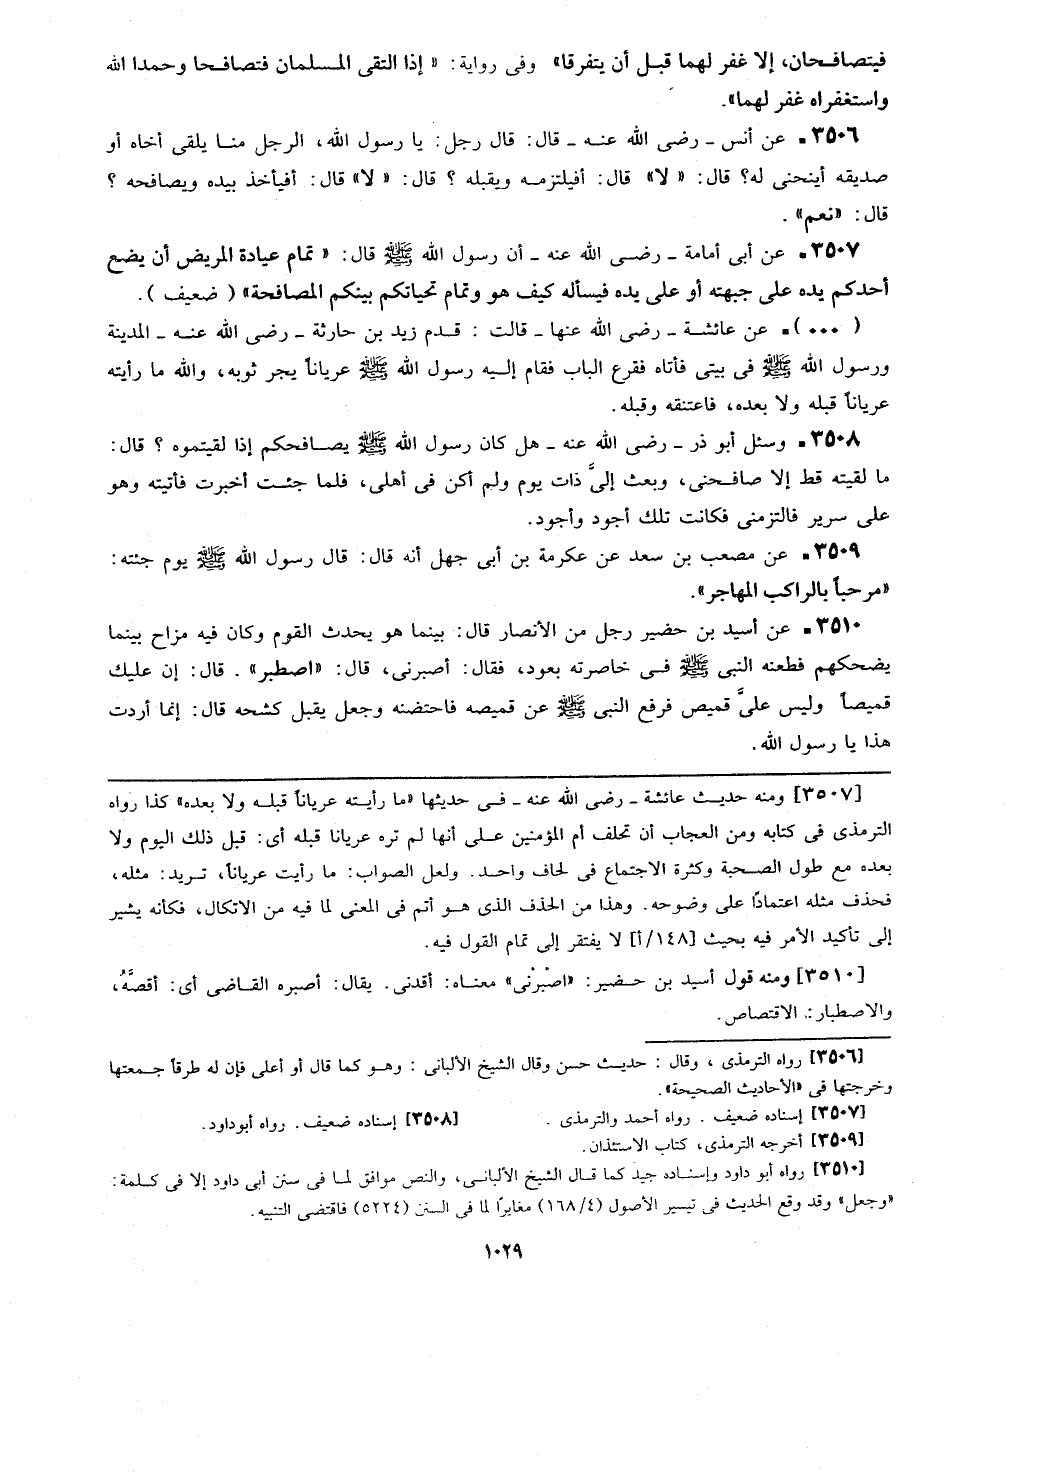 فيتصافحان، إلا غفر لهما قبل أن يتفرقا» وفى رواية: « إذا التقى المسلمان فتصافحا وحمدا الله
واستغفراه غفر لهما».
٣٥٠٦. عن أنس ـ رضى الله عنه ـ قال: قال رجل: يا رسول الله، الرجل منا يلقى أخاه أو
صديقه أينحنى له؟ قال: « لا» قال: أفيلتزمه ويقبله ؟ قال: « لا» قال: أفيأخذ بيده ويصافحه ؟
قال: «نعم» .
٣٥٠٧. عن أبى أمامة ـ رضى الله عنه ـ أن رسول الله ﷺ قال: « تمام عيادة المريض أن يضع
أحدكم يده على جبهته أو على يده فيسأله كيف هو وتمام تحياتكم بينكم المصافحة» ( ضعيف ).
( ٠٠٠ ). عن عائشة ـ رضى الله عنها ـ قالت : قدم زيد بن حارثة ـ رضى الله عنه ـ المدينة
ورسول الله ﷺ فى بيتى فأتاه فقرع الباب فقام إليه رسول الله ﷺ عرياناً يجر ثوبه، والله ما رأيته
عرياناً قبله ولا بعده، فاعتنقه وقبله.
٣٥٠٨. وسئل أبو ذر ـ رضى الله عنه ـ هل كان رسول الله ﷺ يصافحكم إذا لقيتموه ؟ قال:
ما لقيته قط إلا صافحنى، وبعث إلىَّ ذات يوم ولم أكن فى أهلى، فلما جئت أخبرت فأتيته وهو
على سرير فالتزمنى فكانت تلك أجود وأجود.
٣٥٠٩. عن مصعب بن سعد عن عكرمة بن أبى جهل أنه قال: قال رسول الله ﷺ يوم جئته:
«مرحباً بالراكب المهاجر».
٣٥١٠. عن أسيد بن حضير رجل من الأنصار قال: بينما هو يحدث القوم وكان فيه مزاح بينما
يضحكهم فطعنه النبى ﷺ فى خاصرته بعود، فقال: أصبرنى، قال: «اصطبر» . قال: إن عليك
قميصاً وليس علىَّ قميص فرفع النبى ﷺ عن قميصه فاحتضنه وجعل يقبل كشحه قال: إنما أردت
هذا يا رسول الله.
[٣٥٠٧] ومنه حديث عائشة ـ رضى الله عنه ـ فى حديثها «ما رأيته عرياناً قبله ولا بعده» كذا رواه
الترمذى فى كتابه ومن العجاب أن تحلف أم المؤمنين على أنها لم تره عريانا قبله أى: قبل ذلك اليوم ولا
بعده مع طول الصحبة وكثرة الاجتماع فى لحاف واحد. ولعل الصواب: ما رأيت عرياناً، تريد: مثله،
فحذف مثله اعتمادًا على وضوحه. وهذا من الحذف الذى هو أتم فى المعنى لما فيه من الاتكال، فكأنه يشير
إلى تأكيد الأمر فيه بحيث [١٤٨/أ] لا يفتقر إلى تمام القول فيه.
[٣٥١٠] ومنه قول أسيد بن حضير: «اصْبرْنى» معناه: أقدنى. يقال: أصبره القاضى أى: أقصَّهُ،
والاصطبار: الاقتصاص.
[٣٥٠٦] رواه الترمذى ، وقال : حديث حسن وقال الشيخ الألبانى : وهو كما قال أو أعلى فإن له طرقاً جمعتها
وخرجتها فى «الأحاديث الصحيحة».
[٣٥٠٧] إسناده ضعيف . رواه أحمد والترمذى . [٣٥٠٨] إسناده ضعيف. رواه أبوداود.
[٣٥٠٩] أخرجه الترمذى، كتاب الاستئذان.
[٣٥١٠] رواه أبو داود وإسناده جيد كما قال الشيخ الألبانى، والنص موافق لما فى سنن أبى داود إلا فى كلمة:
«وجعل» وقد وقع الحديث فى تيسير الأصول (١٦٨/٤) مغايرًا لما فى السنن (٥٢٢٤) فاقتضى التنبيه.
١٠٢٩